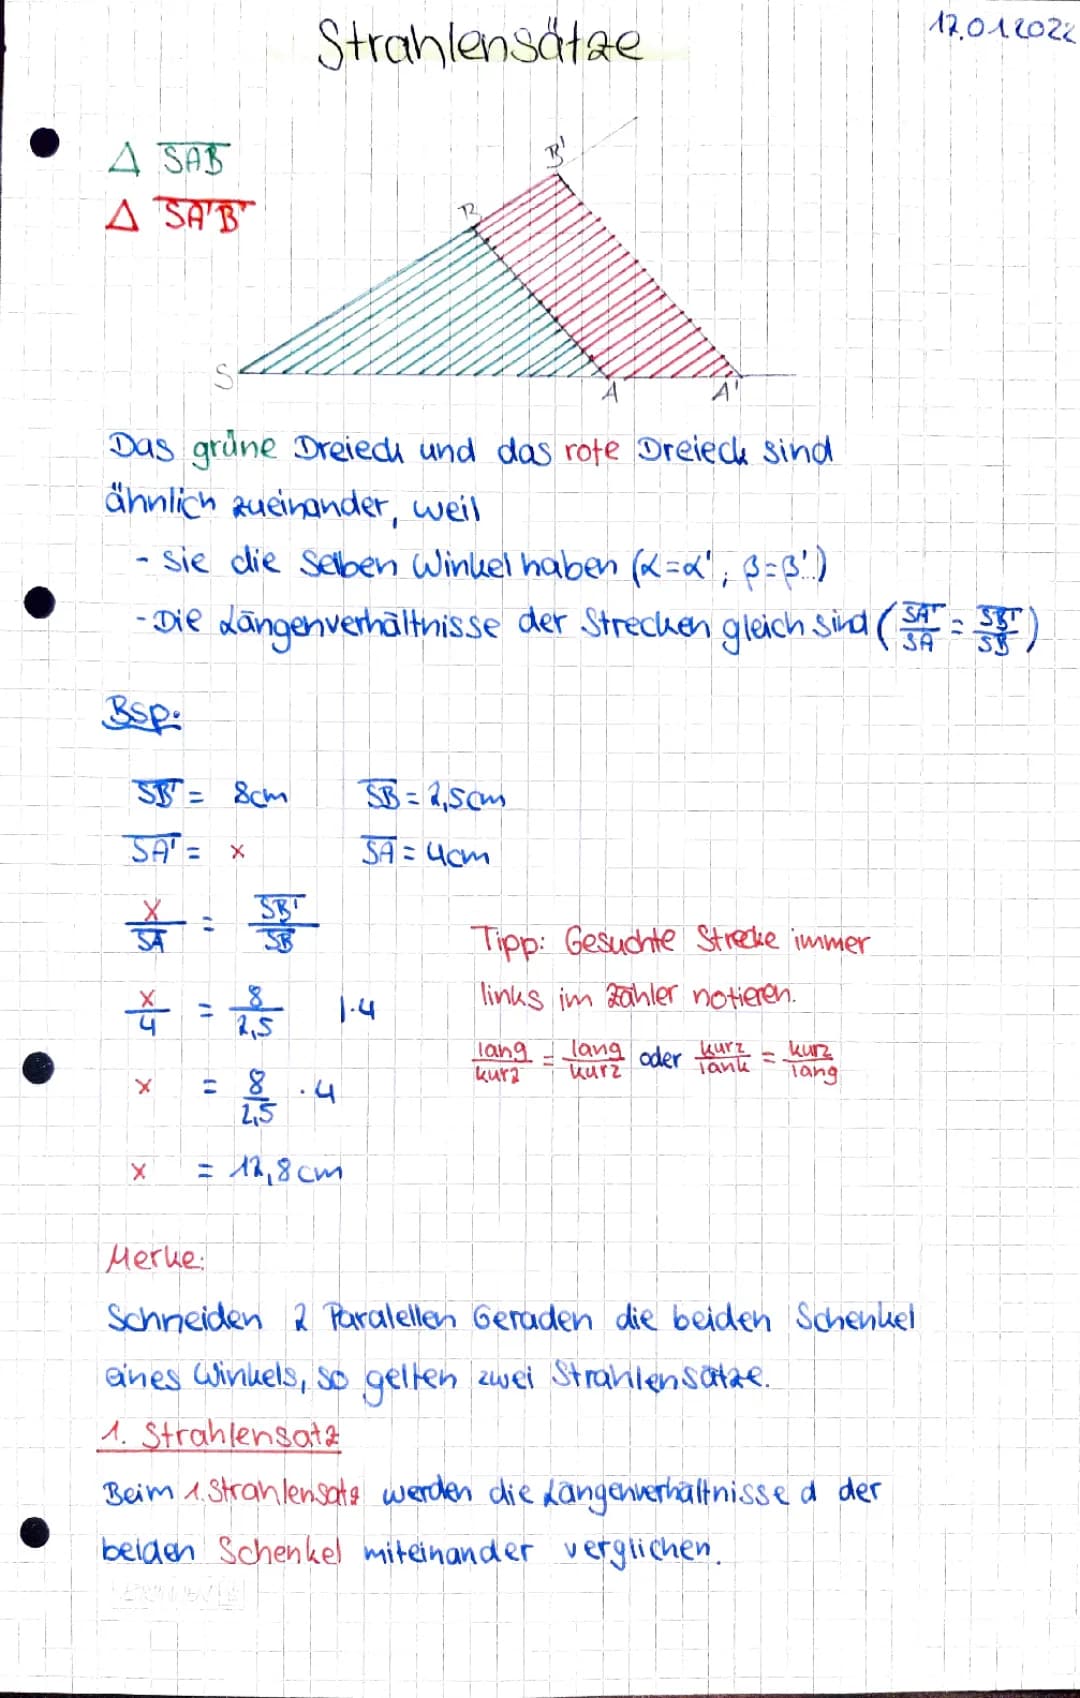 Strahlensätze
17.01.2022
Δ SAB
Δ SA'B'
B'
B
S
A
A'
Das grüne Dreieck und das rote Dreieck sind
ähnlich zueinander, weil
- sie die selben Winkel haben (α=α', β=β')
- Die Längenverhältnisse der Strecken gleich sind (SA'/SA = SB'/SB)
Bsp:
SB' = 8cm SB = 2,5cm
SA' = x SA = 4cm
x/SA = SB'/SB
Tipp: Gesuchte Strecke immer
links im Zähler notieren.
x/4 = 8/2,5 |·4
lang/kurz = lang/kurz oder kurz/lank = kurz/lang
x = 8/2,5 · 4
x = 12,8cm
Merke:
Schneiden 2 Paralellen Geraden die beiden Schenkel
eines Winkels, so gelten zwei Strahlensätze.
1. Strahlensatz
Beim 1. Strahlensatz werden die Längenverhältnisse d der
beiden Schenkel miteinander verglichen.